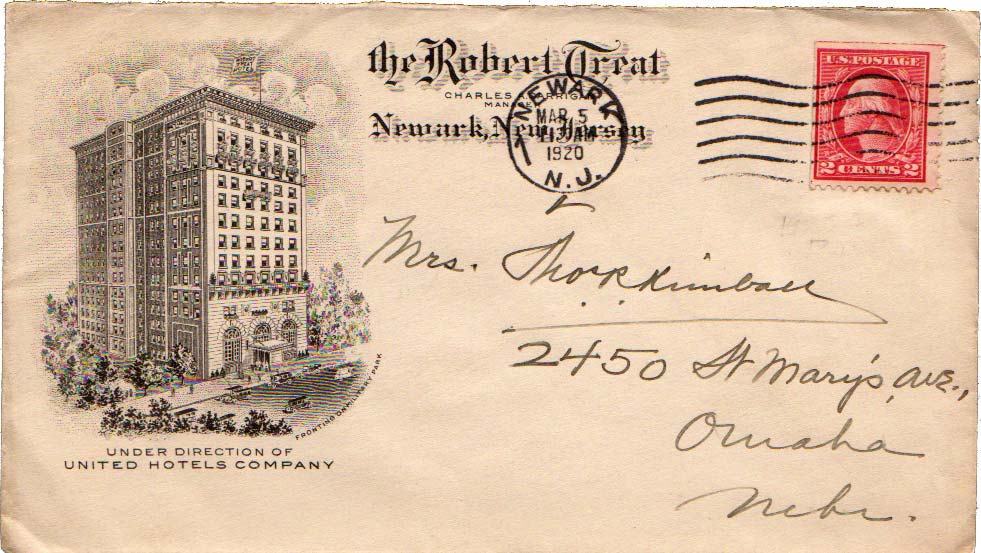 the Robert Treat
CHARLES A. CARRIGAN
MANAGER
Newark, New Jersey
NEWARK
MAR 5
AM
1920
N.J.
U.S. POSTAGE
2 CENTS 2
Mrs. Thos R Kimball
2450 St Mary's Ave.,
Omaha
Nebr.
FRONTING ON MILITARY PARK
UNDER DIRECTION OF
UNITED HOTELS COMPANY